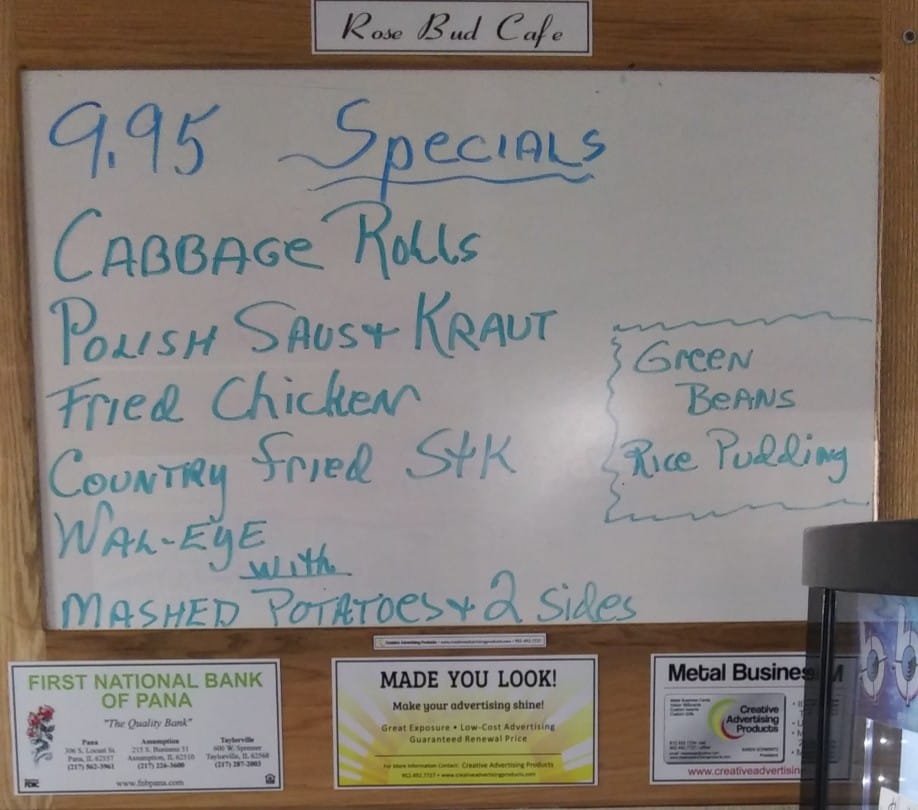 Rose Bud Cafe
9.95 Specials
Cabbage Rolls
Polish Saus + Kraut
Fried Chicken
Country Fried Stk
Wal-Eye
with
Mashed Potatoes + 2 Sides
Green
Beans
Rice Pudding
FIRST NATIONAL BANK
OF PANA
"The Quality Bank"
Pana
306 S. Locust St.
Pana, IL 62557
(217) 562-3961
Assumption
Assumption, IL 62510
(217) 226-3600
Taylorville
600 W. Spresser
Taylorville, IL 62568
(217) 287-2003
www.fnbpana.com
MADE YOU LOOK!
Make your advertising shine!
Great Exposure • Low-Cost Advertising
Guaranteed Renewal Price
For More Information Contact: Creative Advertising Products
952.492.7727 • www.creativeadvertisingproducts.com
Metal Busines
Creative
Advertising
Products
www.creativeadvertisin